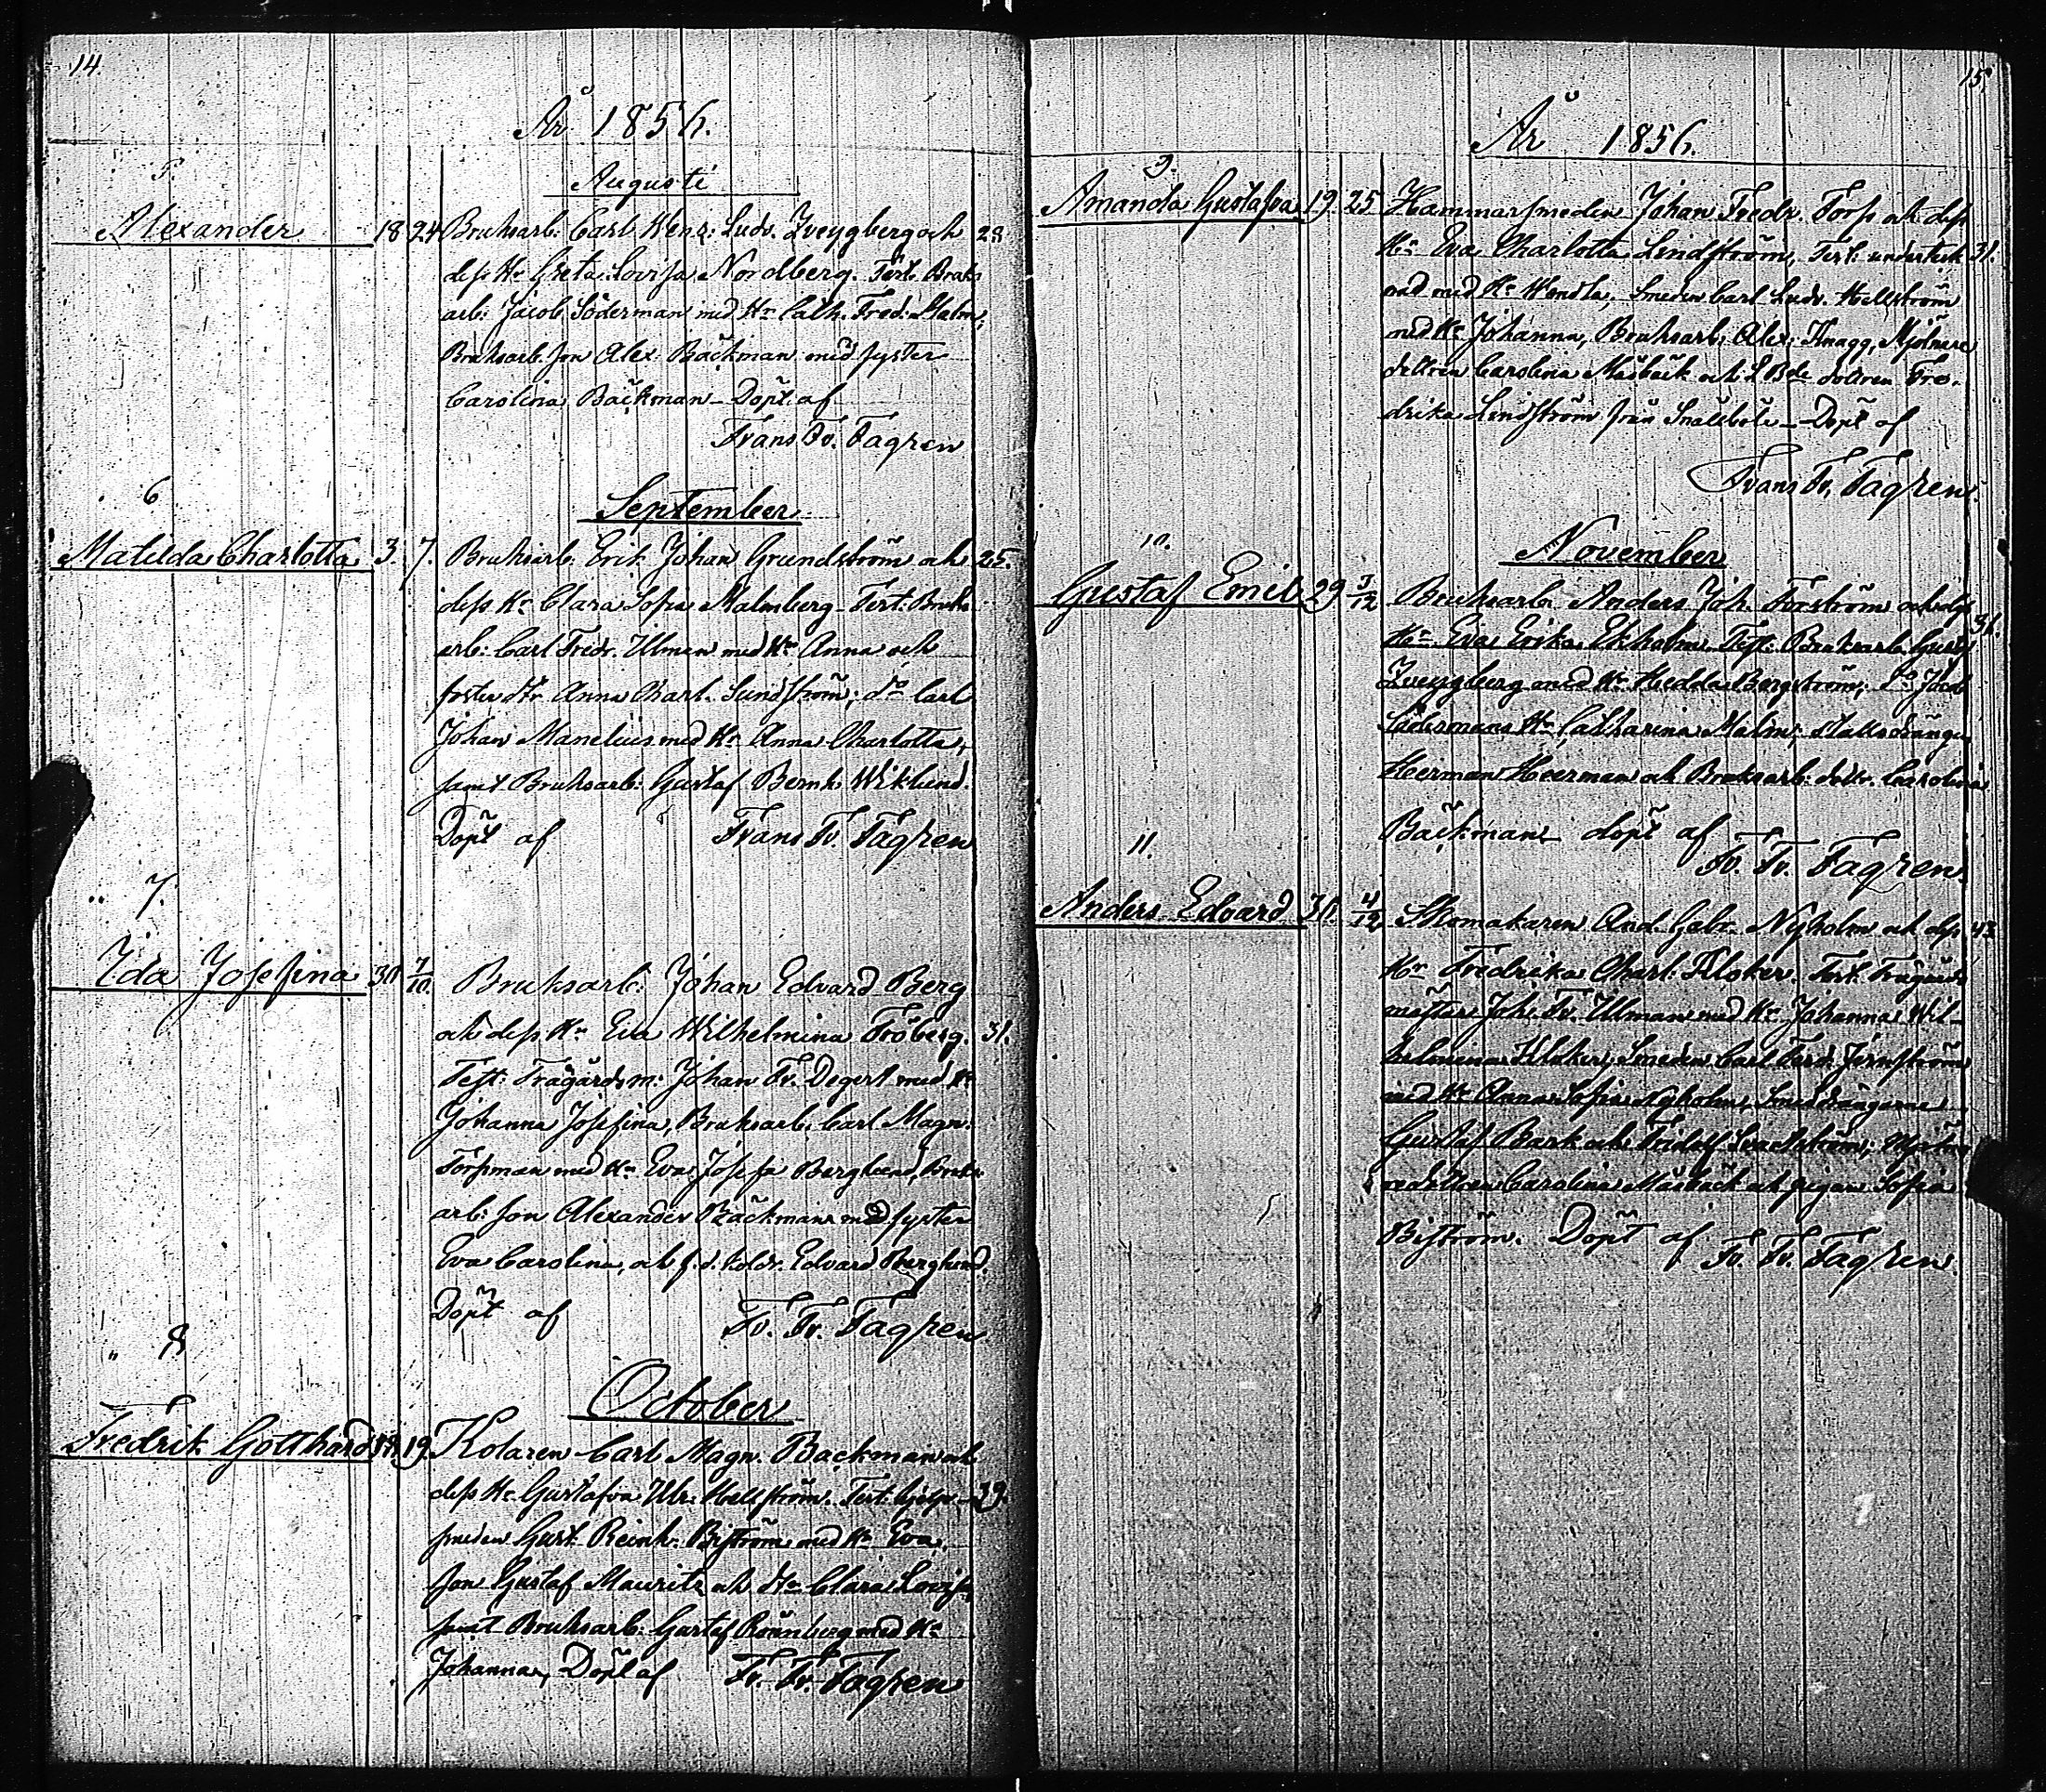 14.
År 1856.
5.
Augusti
Alexander 18 24 Bruksarb. Carl Henr: Ludv. Zveygberg och 28
dess Hu Greta Lovisa Nordberg. Test. Bruks
arb: Jacob Söderman med Hu Cath. Fred: Malm,
Bruksarb. son Alex. Bäckman med syster
Carolina Bäckman – Döpt af
Frans Fr. Fagren
6
September
Matilda Charlotta 3. 7. Bruksarb. Erik Johan Grundström och 25.
dess Hu Clara Sofia Malmberg – Test: Bruks
arb: Carl Fredr. Ulman med Hu Anna och
foster dtr Anna Charl. Sundström; do Carl
Johan Manelius med Hu Anna Charlotta,
samt Bruksarb: Gustaf Bernh. Wiklund.
Döpt af Frans Fr. Fagren
7.
Ida Josefina 30 7/10. Bruksarb: Johan Edvard Berg
och dess Hu Eva Wilhelmina Fröberg. 31.
Test: Trägårdsm: Johan Fr. Degert med Hu
Johanna Josefina, Bruksarb. Carl Magn:
Forsman med Hu Eva Josefa Berglund, Bruks
arb: son Alexander Bäckman med syster
Eva Carolina, och f.d. Soldr. Edvard Berglund.
Döpt af Fr. Fr. Fagren
8
October
Fredrik Gotthard 19. Kolaren Carl Magn. Backman och
dess Hu Gustafva Ulr: Hellström. Test: 39.
smeden Gust. Reinh. Biström med Hu Eva
son Gustaf Mauritz och dtr Clara Lovisa,
samt Bruksarb: Gustaf Rönnberg med Hu
Johanna, Döpt af Fr. Fr. Fagren
15.
År 1856.
9.
Amanda Gustafva 19. 25 Hammarsmeden Johan Fredr. Fors och dess
Hu Eva Charlotta Lindström, Test: underteck 31.
nad med Hu Wendla, Smeden Carl Ludv. Hellström
med Hu Johanna, Bruksarb: Alex: Knagg, Mjölnare
dottren Carolina Måsbäck och Bde dottren Fre-
drika Lindström från Snällböle – Döpt af
Frans Fr. Fagren.
November
10.
Gustaf Emil 29 3/12 Bruksarb. Anders Joh. Forström och dess
Hu Eva Erika Ekholm. Test: Bruksarb. Gust. 31.
Zveygberg med Hu Hedda Bergström; Do Jacob
Södermans Hu Catharina Malm; Stallsdrängen
Herman Heerman och Bruksarb: dottr. Carolina
Bäckman, döpt af Fr. Fr. Fagren.
11.
Anders Edvard 30. 4/12 Skomakaren And. Gabr. Nyholm och dess 43
Hu Fredrika Charl: Floker. Test. Trägårds
mästare Joh. Fr. Ulman med Hu Johanna Wil-
helmina Floker, Smeden Carl Ferd. Jernström
med Hu Anna Sofia Nyholm, Smedsdrängarne
Gustaf Bark och Fridolf Lindström; Mjölna
redottren Carolina Måsbäck och pigan Sofia
Biström. Döpt af Fr. Fr. Fagren